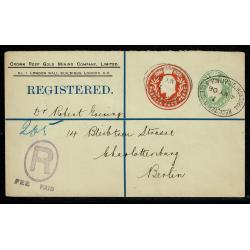 CROWN REEF GOLD MINING COMPANY, LIMITED.
No. 1 LONDON WALL BUILDINGS, LONDON, E.C.
REGISTERED.
Dr Robert
205
14 Bleibtreu Strasse
Charlottenburg
Berlin
R
FEE PAID